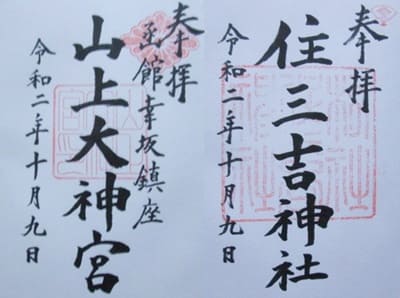 奉拝
函館幸坂鎮座
山上大神宮
令和二年十月九日
奉拝
住三吉神社
令和二年十月九日